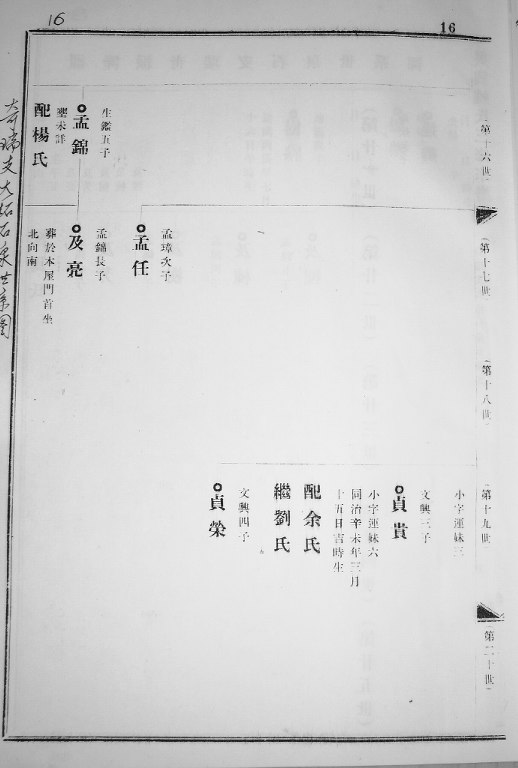 16
16
第十六世
第十七世
第十八世
第十九世
第二十世
生鑑五子
孟錦
塟未詳
配楊氏
孟璋次子
孟任
孟錦長子
及亮
葬於本屋門首坐
北向南
小字運妹三
文興三子
貞貴
小字運妹六
同治辛未年三月
十五日吉時生
配余氏
繼劉氏
文興四子
貞榮